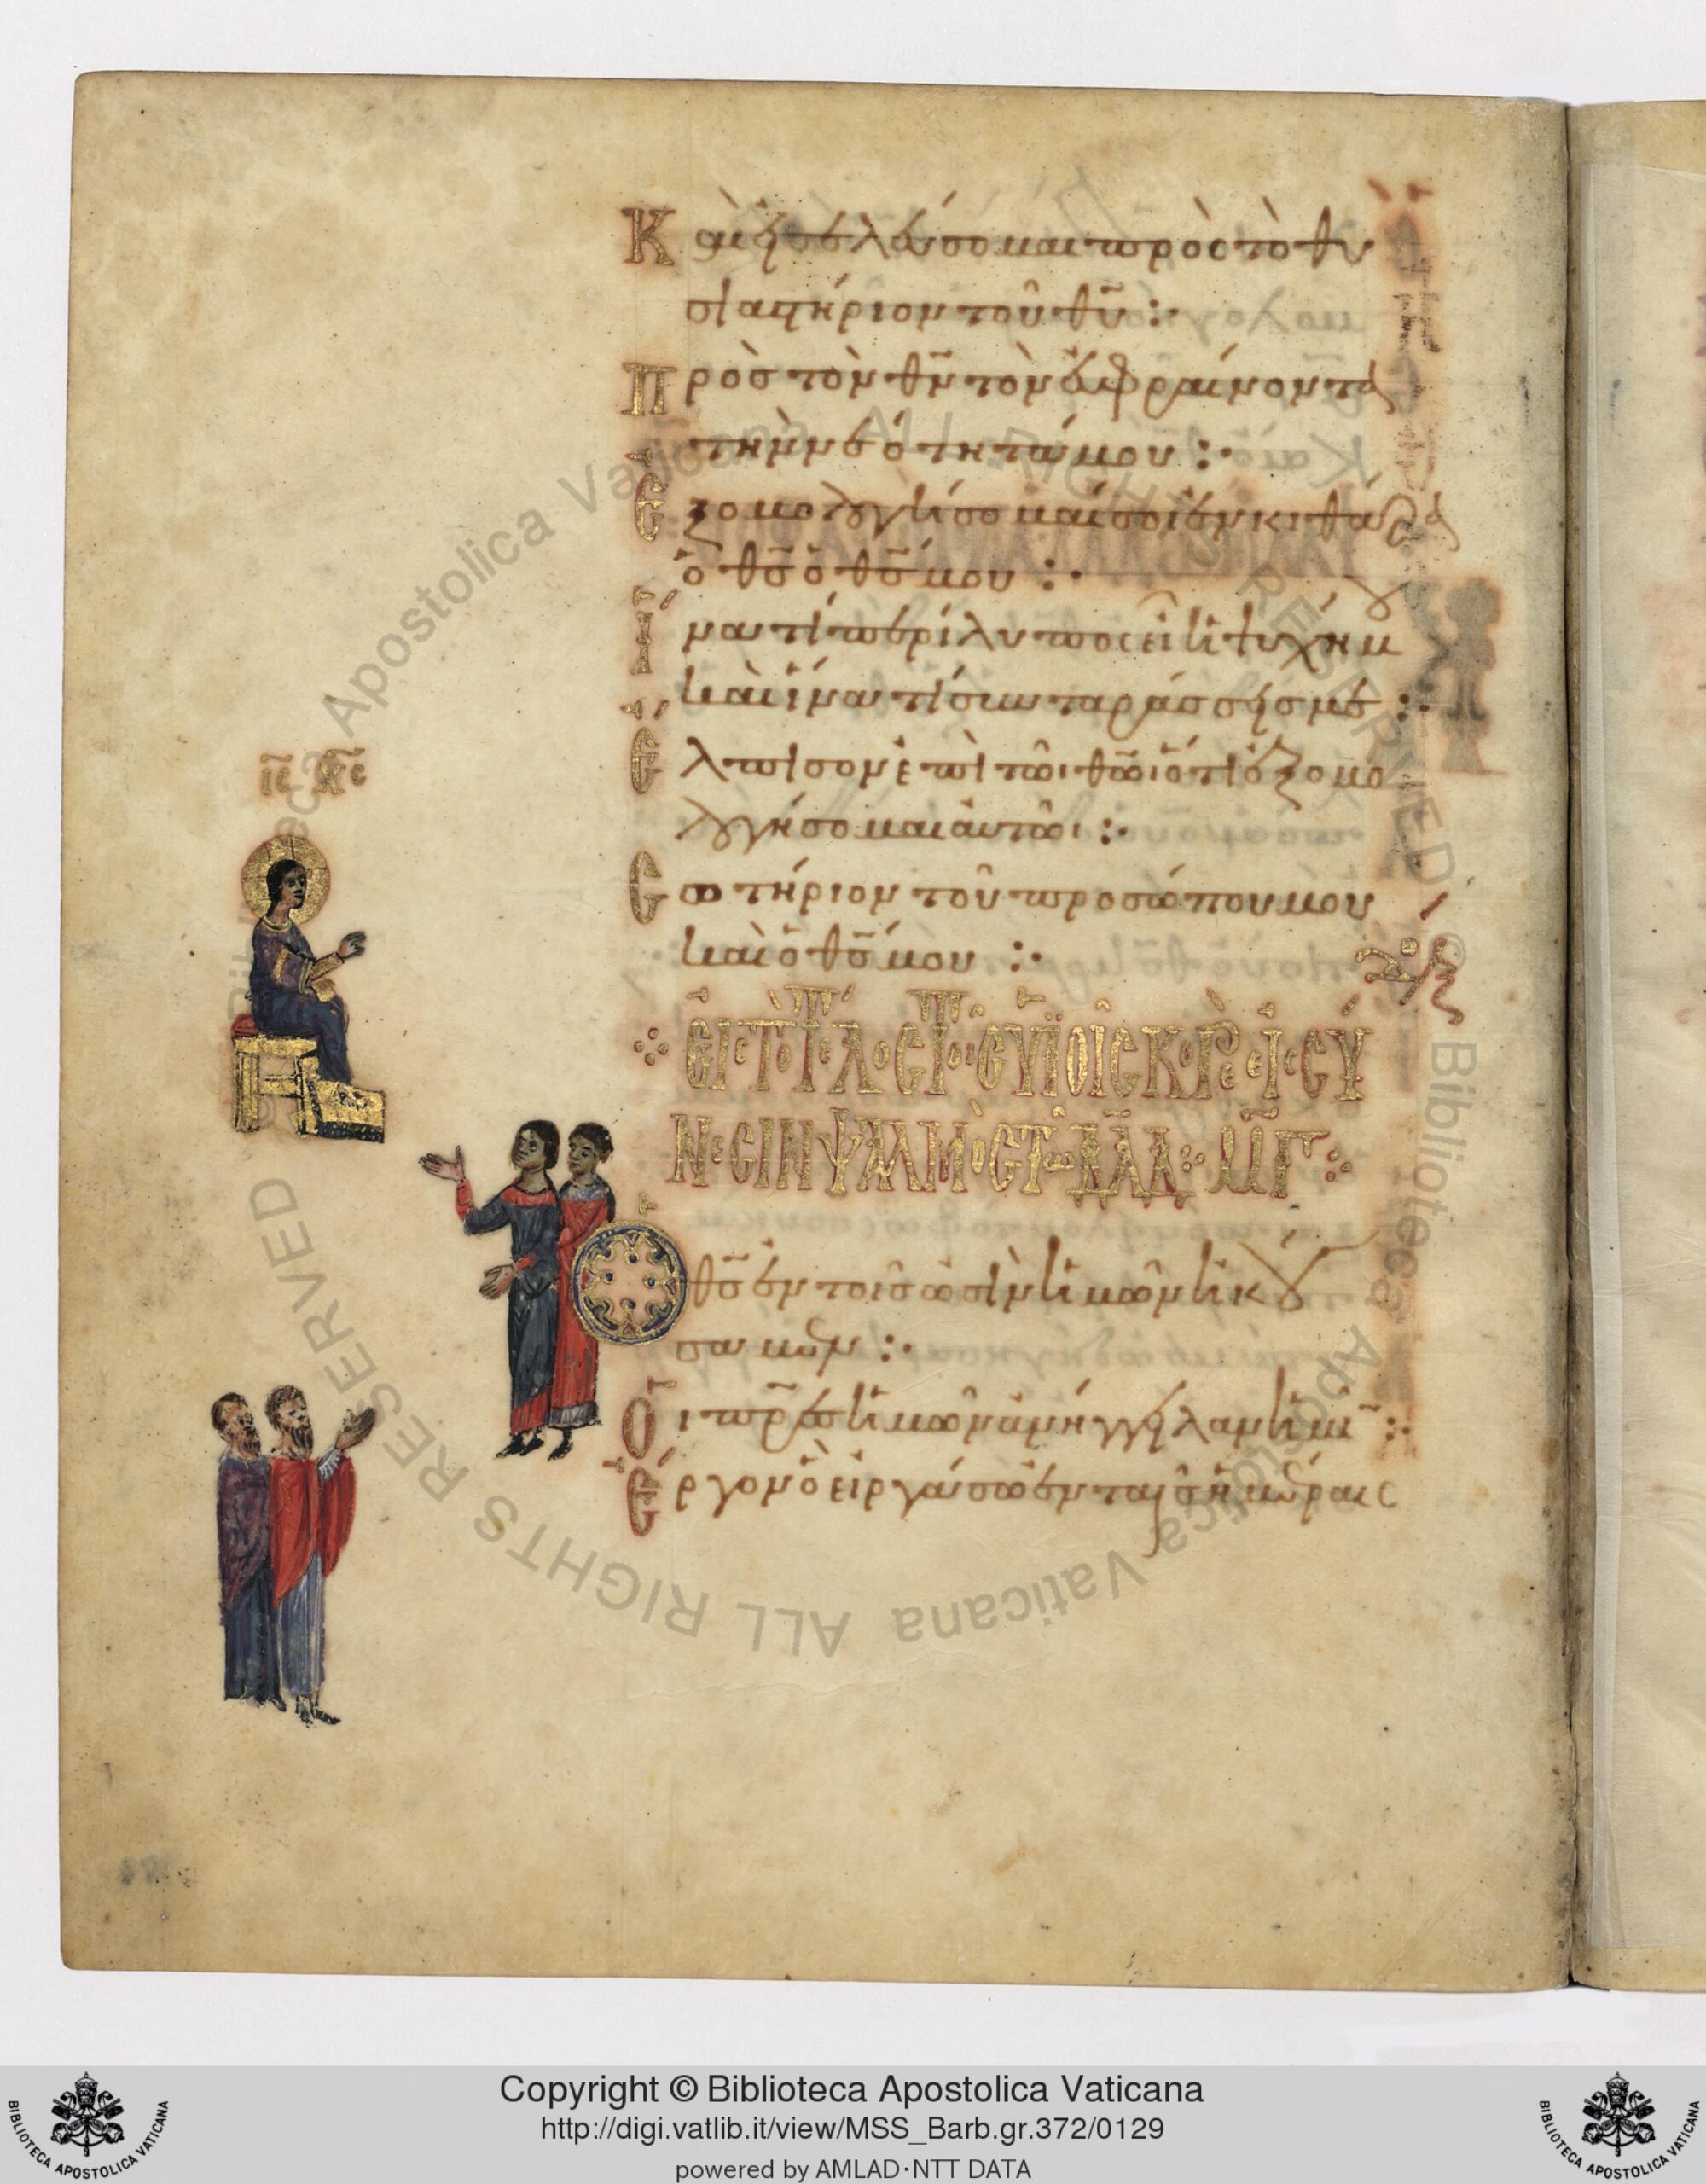 Καὶ εἰσελεύσομαι πρὸς τὸ θυ
σιαστήριον τοῦ θῡ :·
πρὸς τὸν θν̄ τὸν εὐφραίνοντα
τὴν νεότητά μου :·
Ἐξομολογήσομαί σοι ἐν κιθάρᾳ
ὁ θς̄ ὁ θς̄ μου :·
Ἵνα τί περίλυπος εἶ ἡ ψυχή μου
καὶ ἵνα τί συνταράσσεις με :·
Ἔλπισον ἐπὶ τῶι θῶ̄ι ὅτι ἐξομο
λογήσομαι αὐτῶι :·
ις̄ χς̄
Σωτήριον τοῦ προσώπου μου
καὶ ὁ θς̄ μου :·
ΨΑΛΜΟC ΤΩ ΔΑΔ ΜΓ
Ὁ θς̄ ἐν τοῖς ὠσὶν ἡμῶν ἠκού
σαμεν :·
Οἱ πρ̄ες ἡμῶν ἀνήγγειλαν ἡμῖν :·
Ἔργον ὃ εἰργάσω ἐν ταῖς ἡμέραις
Biblioteca Apostolica Vaticana ALL RIGHTS RESERVED ©
Copyright © Biblioteca Apostolica Vaticana
http://digi.vatlib.it/view/MSS_Barb.gr.372/0129
powered by AMLAD·NTT DATA
BIBLIOTECA APOSTOLICA VATICANA
BIBLIOTECA APOSTOLICA VATICANA